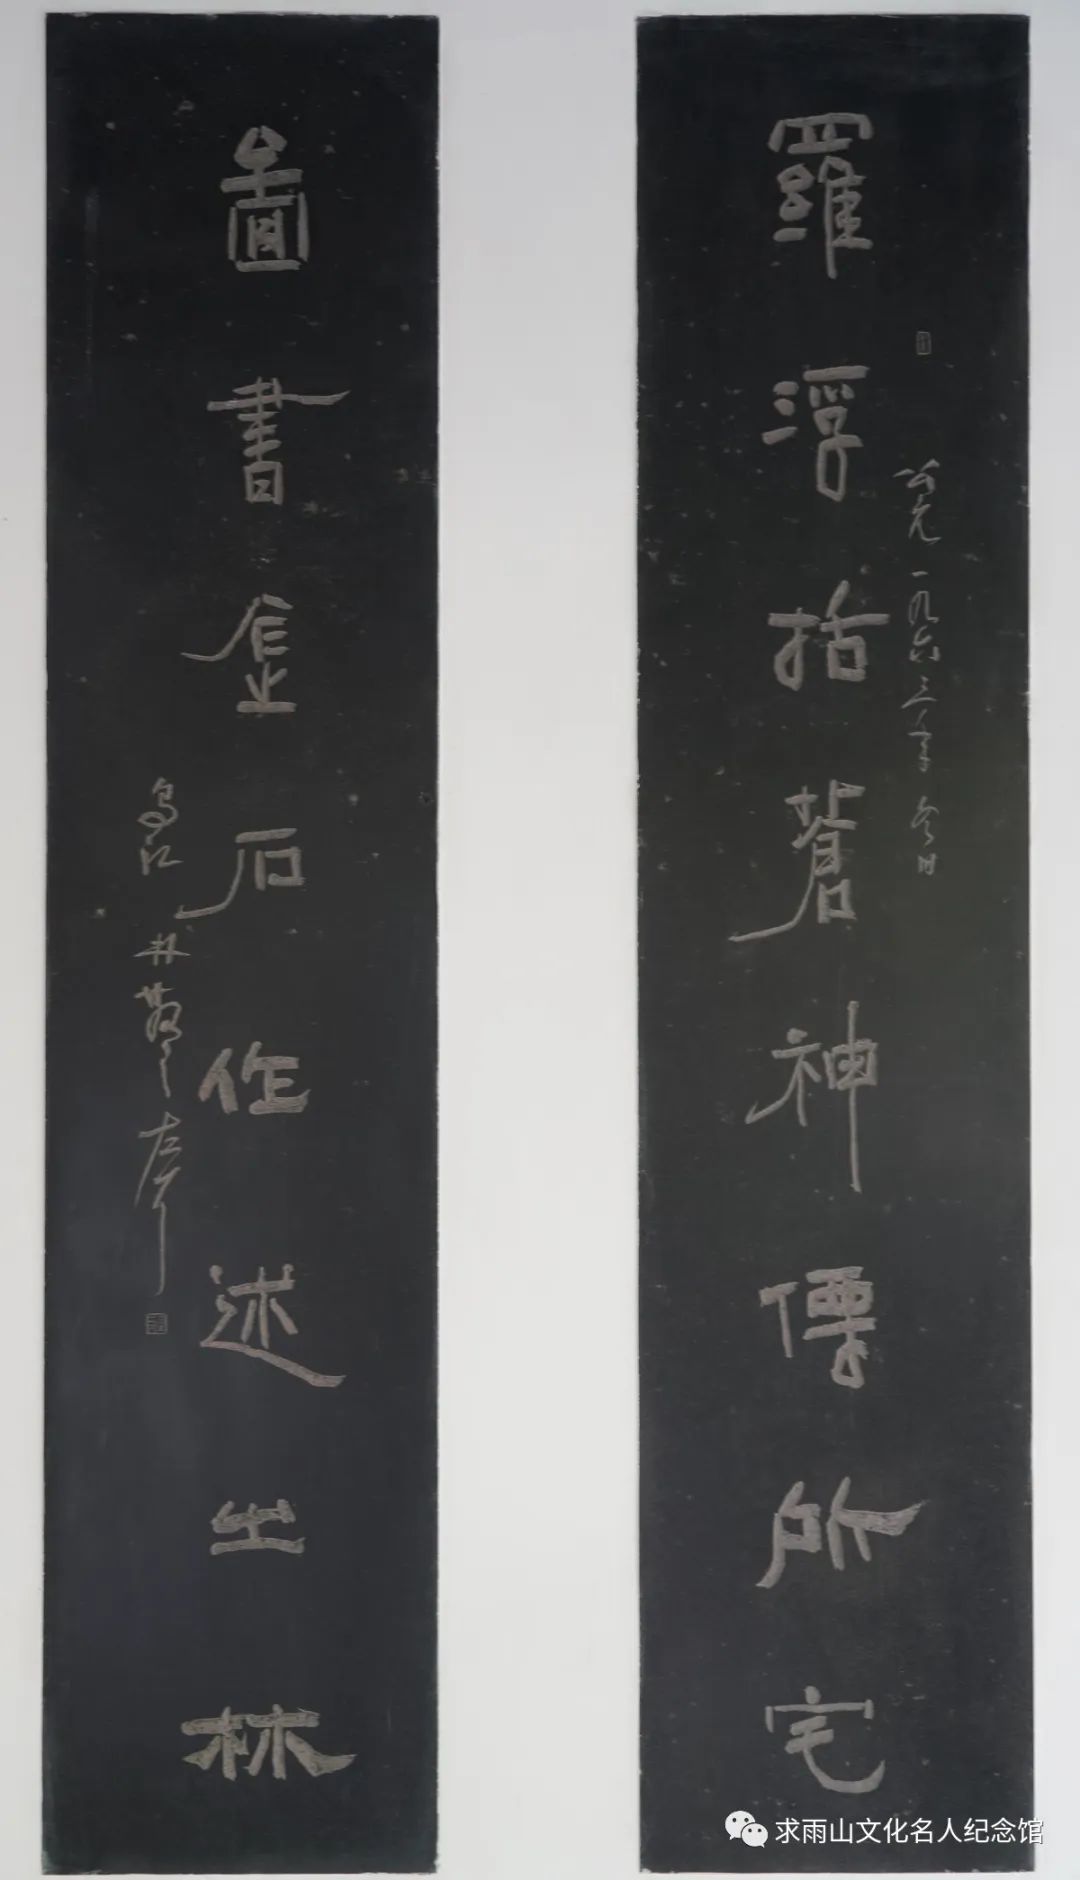 羅浮括蒼神僊所宅
公元一九六三年冬日
圖書金石作述之林
烏江林散之左耳
求雨山文化名人纪念馆